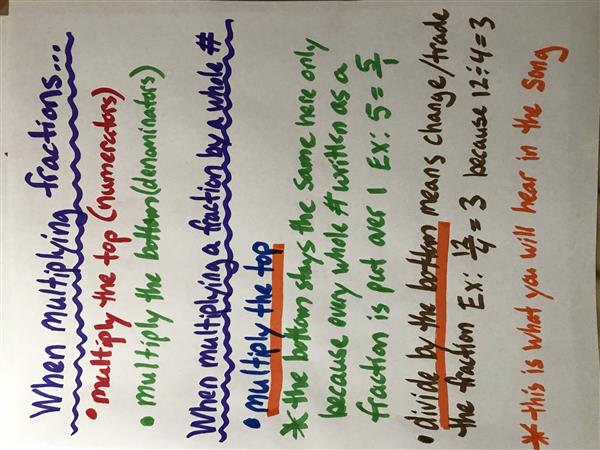 When multiplying fractions...
• multiply the top (numerators)
• multiply the bottom (denominators)
When multiplying a fraction by a whole #
• multiply the top
* the bottom stays the same here only
because every whole # written as a
fraction is put over 1 Ex: 5 = 5/1
• divide by the bottom means change/trade
the fraction Ex: 12/4 = 3 because 12÷4=3
* this is what you will hear in the song